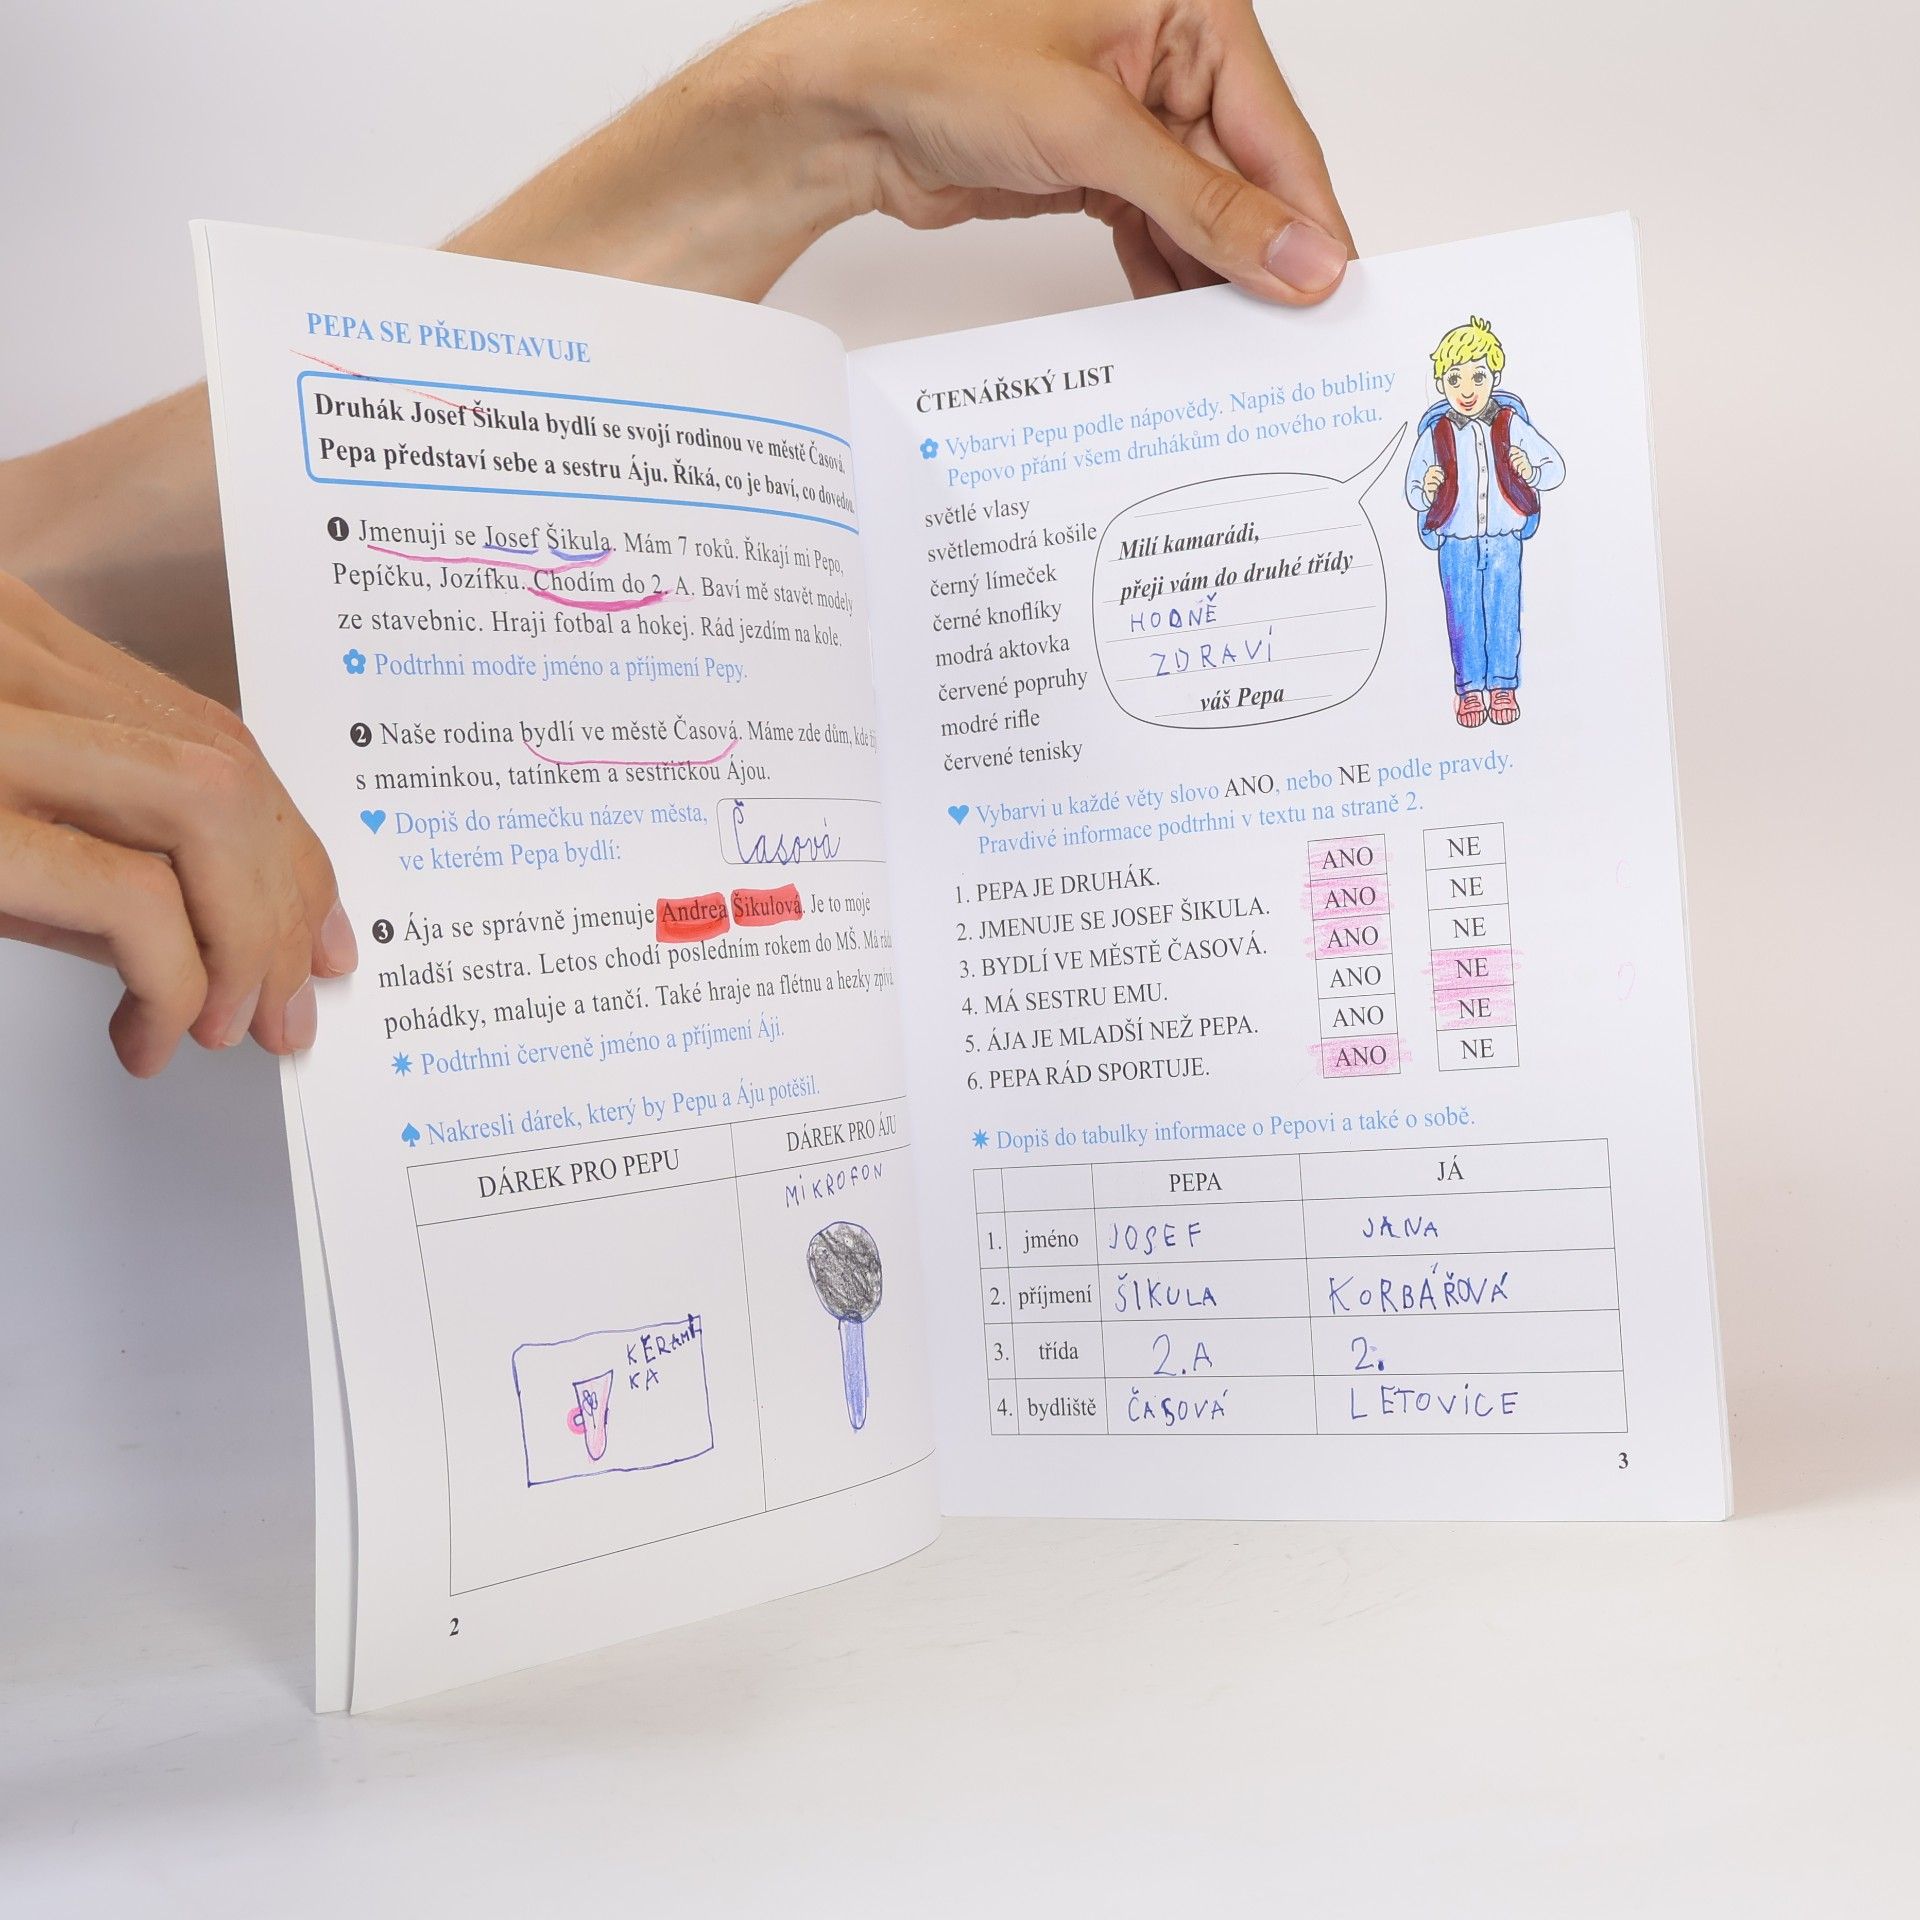 PEPA SE PŘEDSTAVUJE
Druhák Josef Šikula bydlí se svojí rodinou ve městě Časová.
Pepa představí sebe a sestru Áju. Říká, co je baví, co dovedou.
1 Jmenuji se Josef Šikula. Mám 7 roků. Říkají mi Pepo,
Pepíčku, Jozífku. Chodím do 2. A. Baví mě stavět modely
ze stavebnic. Hraji fotbal a hokej. Rád jezdím na kole.
Podtrhni modře jméno a příjmení Pepy.
2 Naše rodina bydlí ve městě Časová. Máme zde dům, kde
s maminkou, tatínkem a sestřičkou Ájou.
Dopiš do rámečku název města,
ve kterém Pepa bydlí:
Časová
3 Ája se správně jmenuje Andrea Šikulová. Je to moje
mladší sestra. Letos chodí posledním rokem do MŠ. Má
pohádky, maluje a tančí. Také hraje na flétnu a hezky
Podtrhni červeně jméno a příjmení Áji.
Nakresli dárek, který by Pepu a Áju potěšil.
DÁREK PRO PEPU DÁREK PRO ÁJU
MIKROFON
KERAMI
KA
2
ČTENÁŘSKÝ LIST
Vybarvi Pepu podle nápovědy. Napiš do bubliny
Pepovo přání všem druhákům do nového roku.
světlé vlasy
světlemodrá košile
černý límeček
černé knoflíky
modrá aktovka
červené popruhy
modré rifle
červené tenisky
Milí kamarádi,
přeji vám do druhé třídy
HODNĚ
ZDRAVÍ
váš Pepa
Vybarvi u každé věty slovo ANO, nebo NE podle pravdy.
Pravdivé informace podtrhni v textu na straně 2.
1. PEPA JE DRUHÁK. ANO NE
2. JMENUJE SE JOSEF ŠIKULA. ANO NE
3. BYDLÍ VE MĚSTĚ ČASOVÁ. ANO NE
4. MÁ SESTRU EMU. ANO NE
5. ÁJA JE MLADŠÍ NEŽ PEPA. ANO NE
6. PEPA RÁD SPORTUJE. ANO NE
Dopiš do tabulky informace o Pepovi a také o sobě.
PEPA JÁ
1. jméno JOSEF JANA
2. příjmení ŠIKULA KORBÁŘOVÁ
3. třída 2.A 2.
4. bydliště ČASOVÁ LETOVICE
3